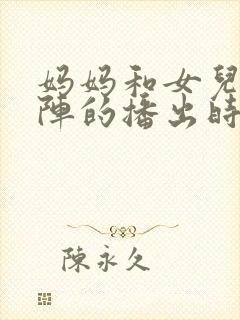 妈妈和女兒
陣的播出時
陳永久